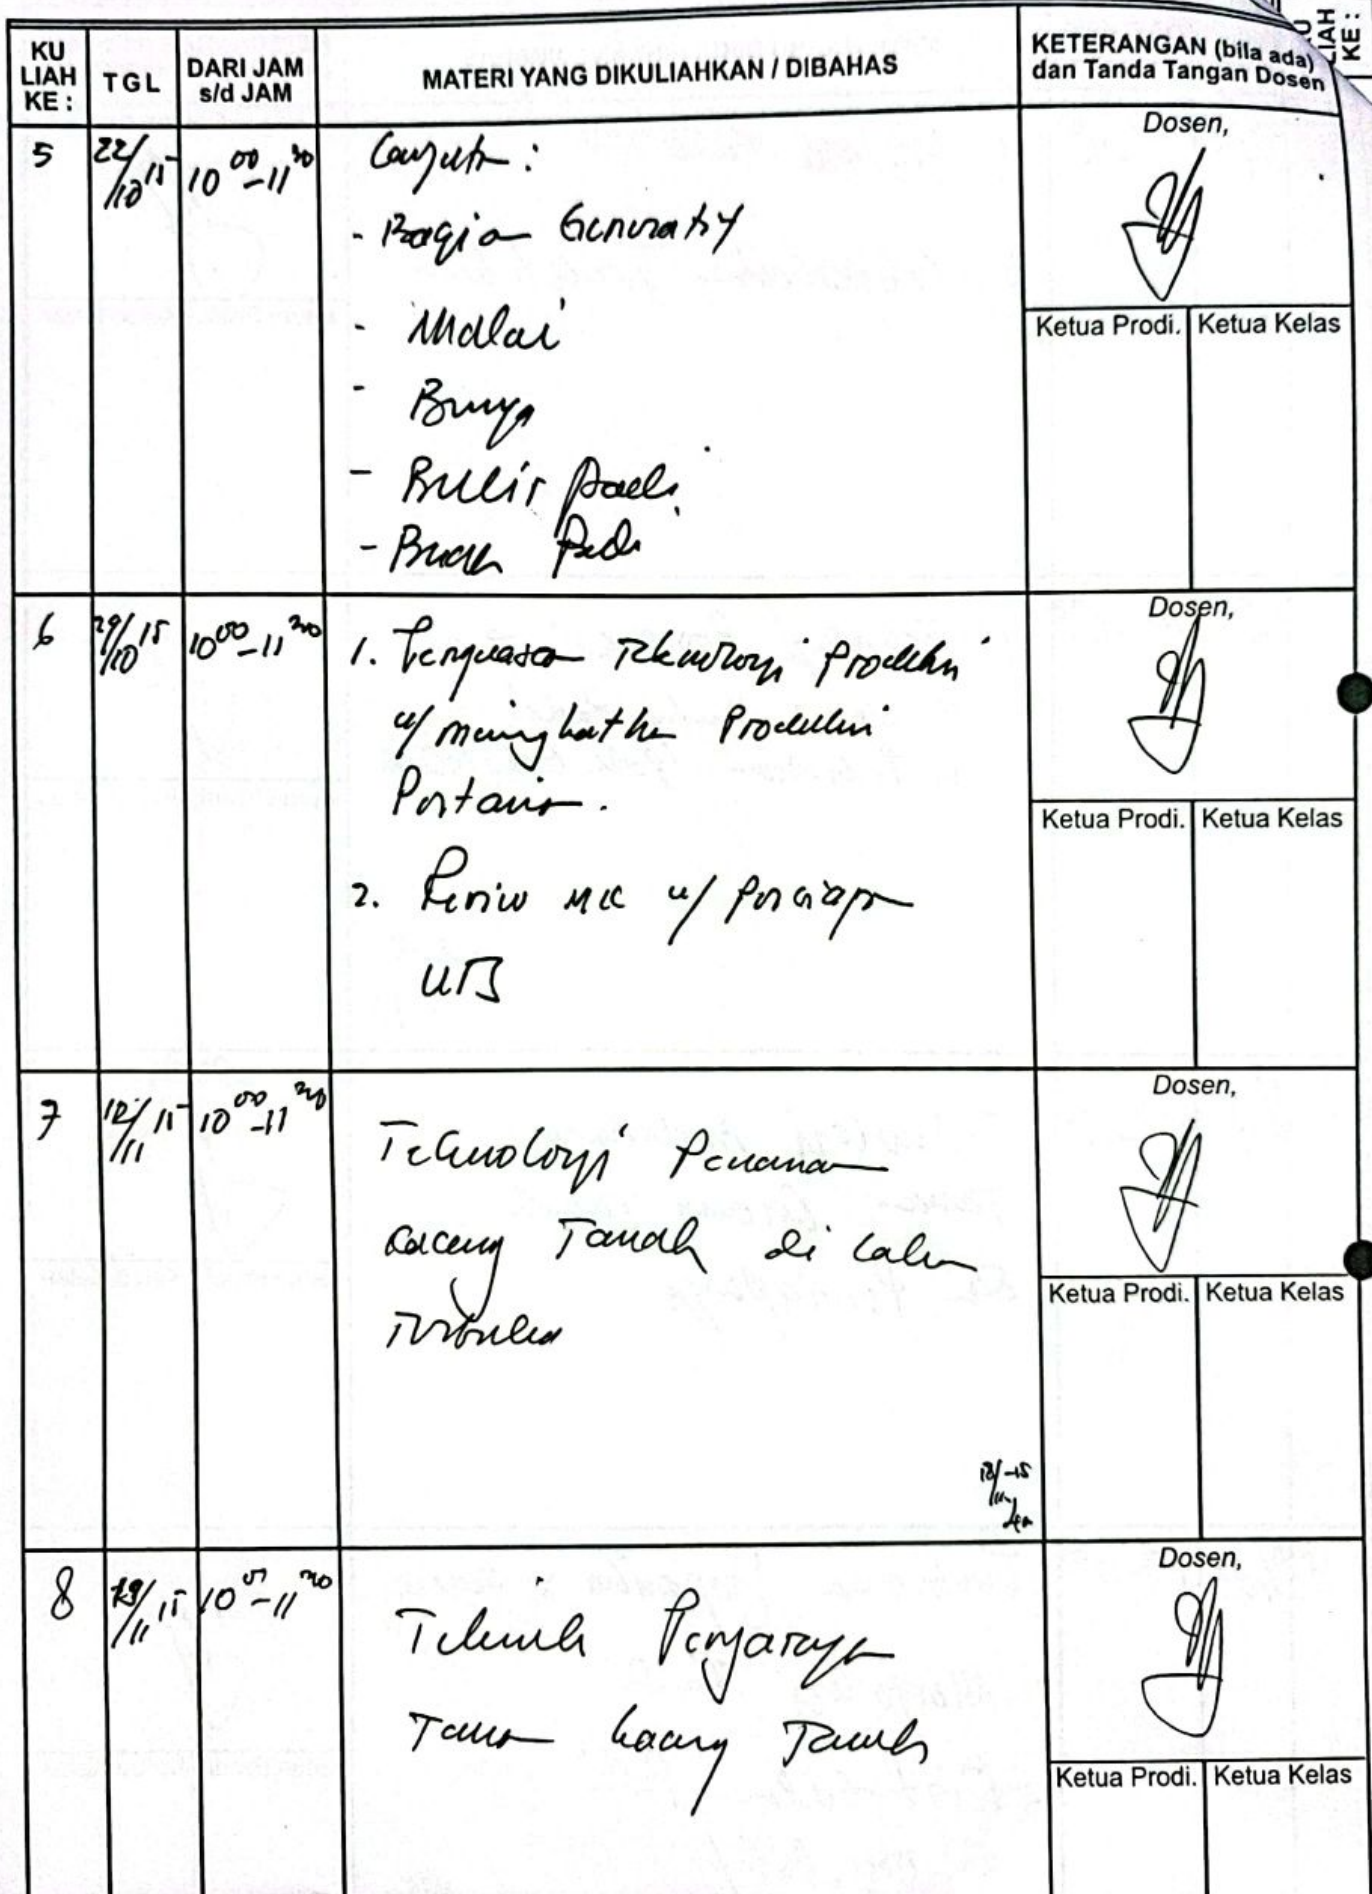 KU
LIAH
KE :
TGL
DARI JAM
s/d JAM
MATERI YANG DIKULIAHKAN / DIBAHAS
KETERANGAN (bila ada)
dan Tanda Tangan Dosen
LIAH
KE :
5
22/10 15
10 00 - 11
- Bagian Generatif
- Malai
- Bunga
- Bulir padi
- Buah Padi
Dosen,
Ketua Prodi.
Ketua Kelas
6
29/10 15
10 00 - 11
1. Penguasaan Teknologi Produksi
u/ meningkatkan Produksi
Pertanian.
2. Review MK u/ persiapan
UTS
Dosen,
Ketua Prodi.
Ketua Kelas
7
12/11 15
10 00 - 11
Teknologi Penanaman
Kacang Tanah di lahan
Terbuka
18/11 - 15
Dosen,
Ketua Prodi.
Ketua Kelas
8
/11 15
10 - 11
Teknik
Kacang Tanah
Dosen,
Ketua Prodi.
Ketua Kelas